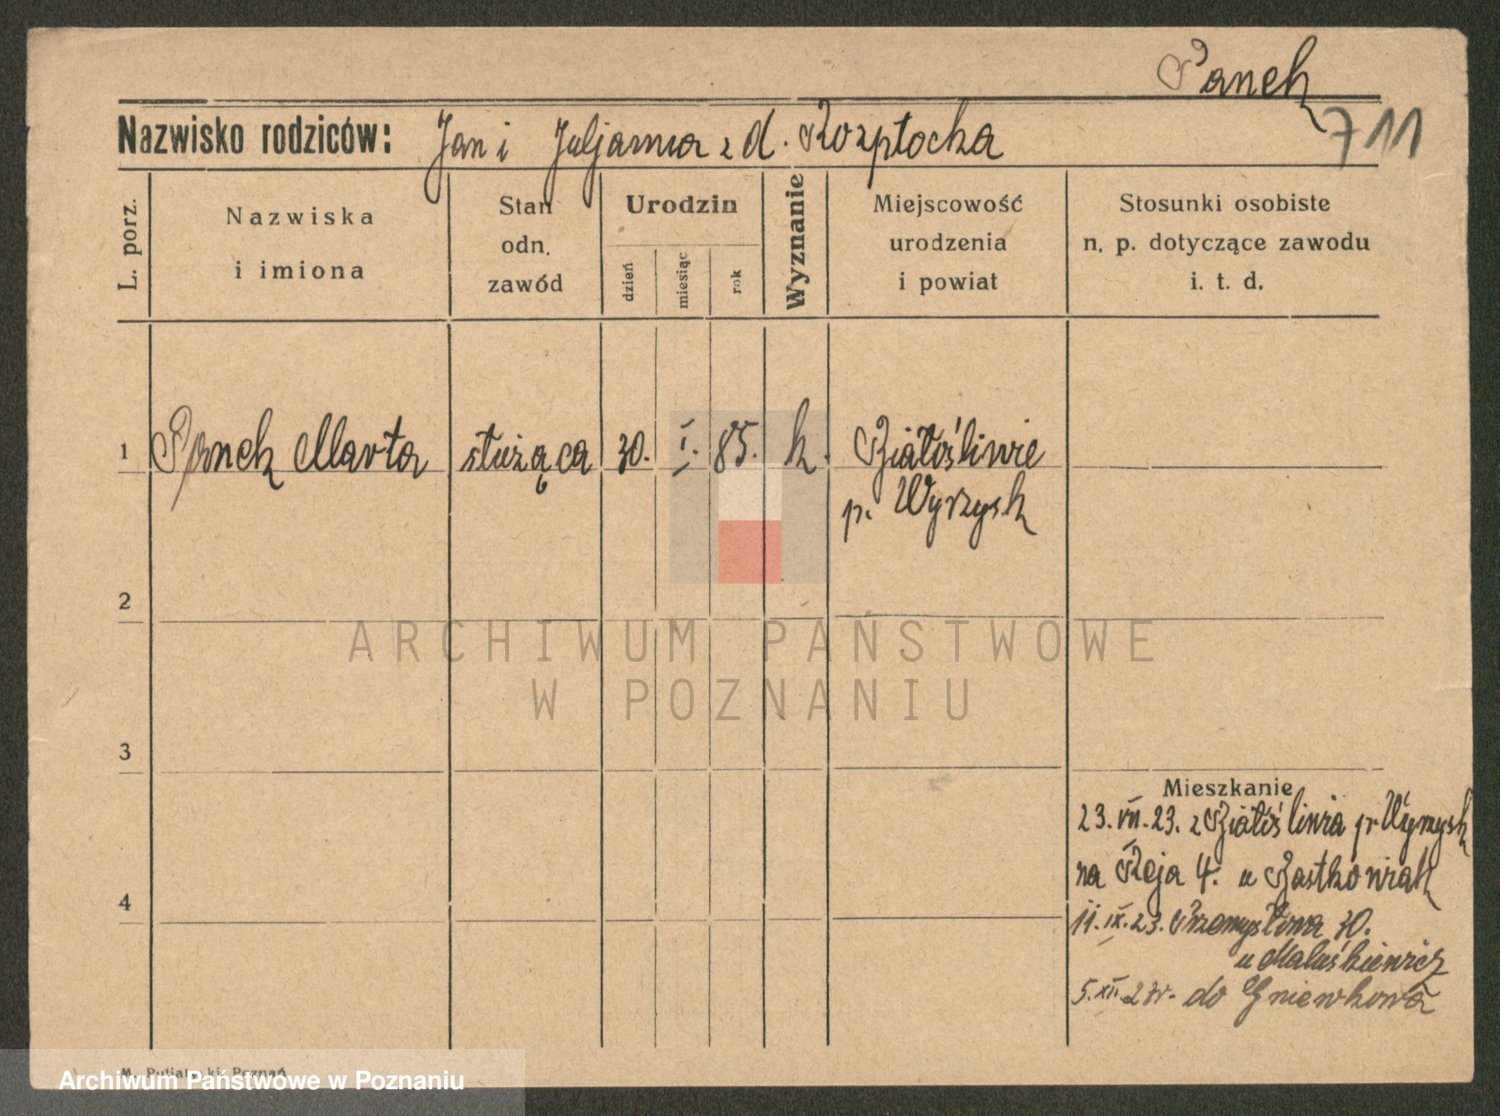 Panek
711
Nazwisko rodziców: Jan i Juljanna z d. Rozpłocka
L. porz.
Nazwiska
i imiona
Stan
odn.
zawód
Urodzin
dzień
miesiąc
rok
Wyznanie
Miejscowość
urodzenia
i powiat
Stosunki osobiste
n. p. dotyczące zawodu
i. t. d.
1 Panek Marta służąca 30. I. 85. k. Białośliwie
p. Wyrzysk
2
3
4
ARCHIWUM PAŃSTWOWE
W POZNANIU
Mieszkanie
23. VII. 23. z Białośliwia p. Wyrzysk
na Reja 4. u Bastkowiak
11. IX. 23. Przemysłowa 30.
u Maluśkiewicz
5. XII. 23r. do Gniewkowa
Poznań
Archiwum Państwowe w Poznaniu